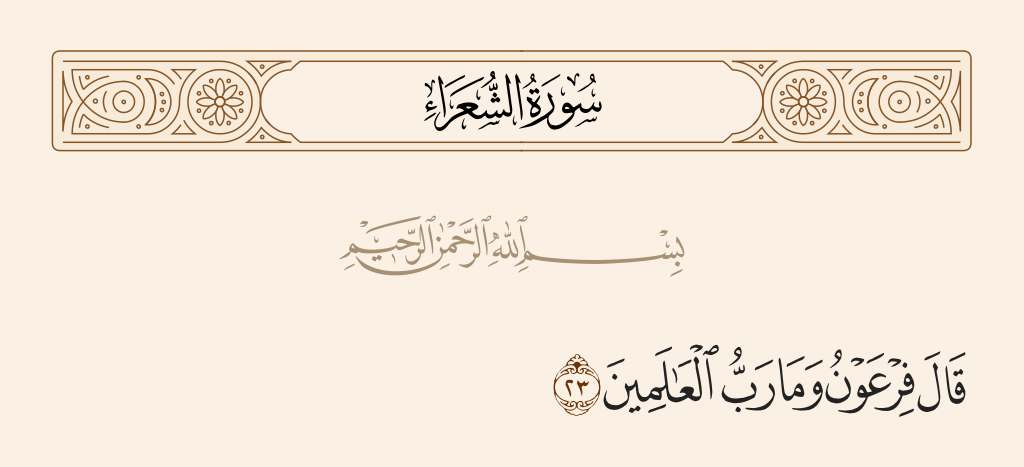 سُورَةُ الشُّعَرَاءِ
بِسْمِ ٱللَّهِ ٱلرَّحْمَٰنِ ٱلرَّحِيمِ
قَالَ فِرْعَوْنُ وَمَا رَبُّ ٱلْعَٰلَمِينَ ٢٣